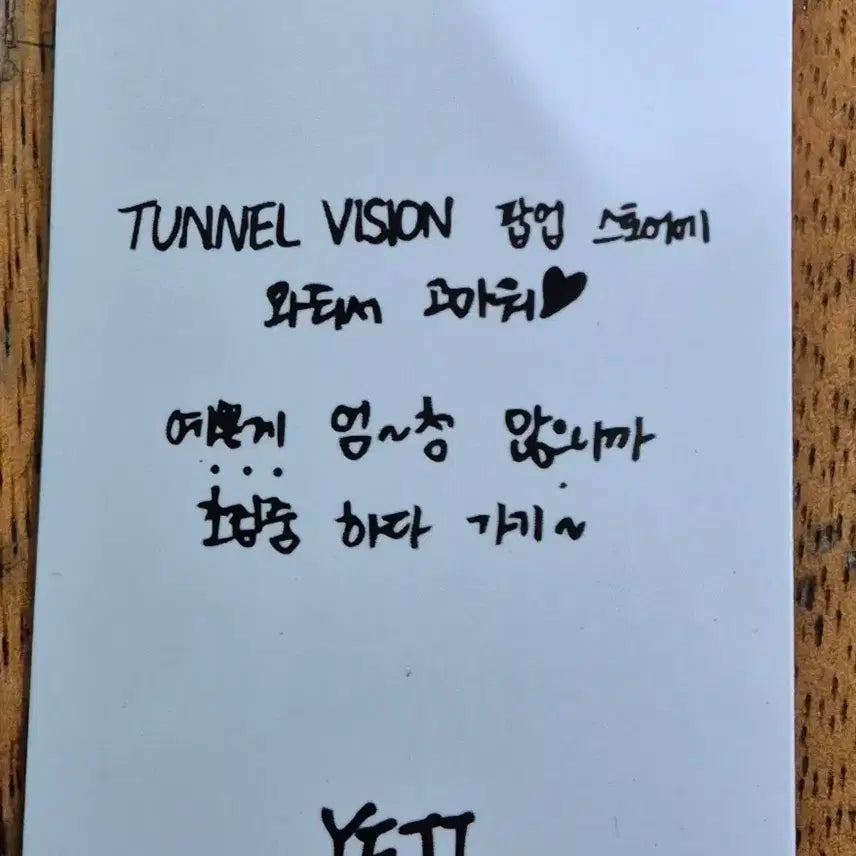 TUNNEL VISION 팝업 스토어에
와줘서 고마워♥
예쁜게 엄~청 많으니까
초집중 하다 가기~
YEJI